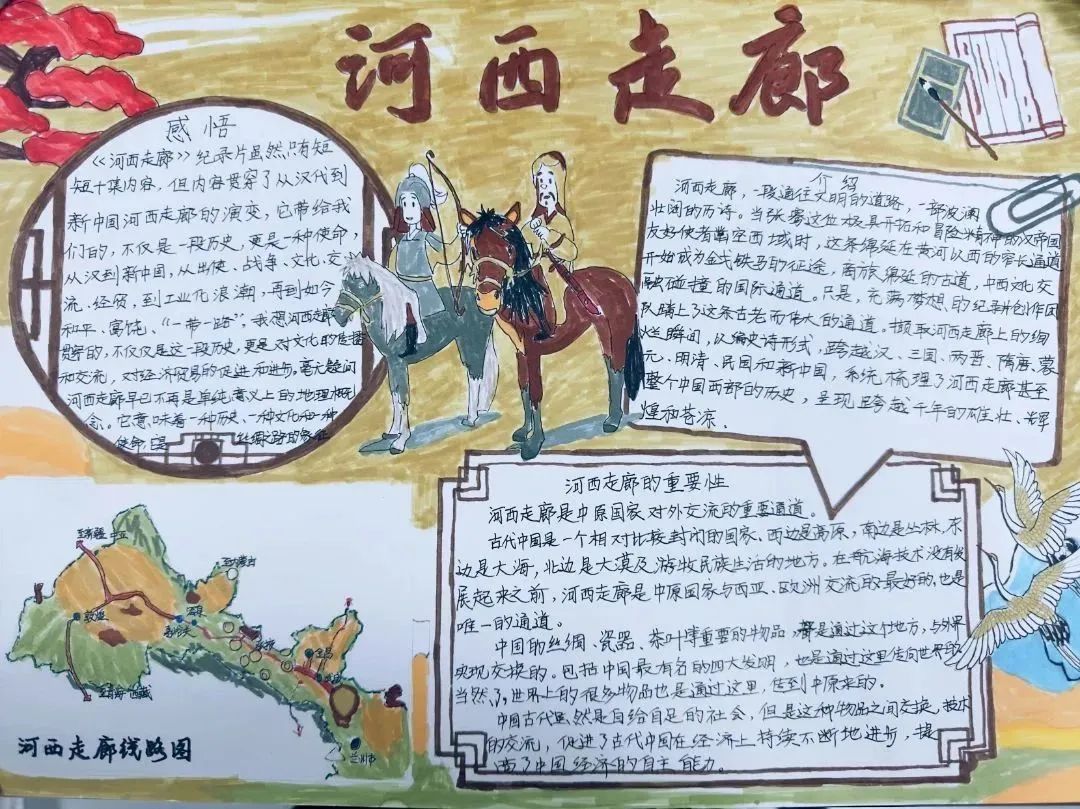 河西走廊
感悟
《河西走廊》纪录片虽然只有短
短十集内容，但内容贯穿了从汉代到
新中国河西走廊的演变，它带给我
们的，不仅是一段历史，更是一种使命，
从汉到新中国，从出使、战争、文化、交
流、经贸，到工业化浪潮，再到如今
和平、富饶、“一带一路”，我想河西走廊
贯穿的，不仅仅是这一段历史，更是对文化的传播
和交流，对经济贸易的促进和进步，毫无疑问
河西走廊早已不再是单纯意义上的地理概
念。它意味着一种历史、一种文化和一种
使命，丝绸之路的象征
介绍
河西走廊，一段通往文明的道路，一部波澜
壮阔的历诗。当张骞这位极具开拓和冒险精神的汉帝国
友好使者凿空西域时，这条绵延在黄河以西的窄长通道
开始成为金戈铁马的征途，商旅绵延的古道，中西文化交
融碰撞的国际通道。只是，充满梦想的纪录片创作团
队踏上了这条古老而伟大的通道，撷取河西走廊上的绚
烂瞬间，以编史诗形式，跨越汉、三国、两晋、隋唐、蒙
元、明清、民国和新中国，系统梳理了河西走廊甚至
整个中国西部的历史，呈现跨越千年的雄壮、辉
煌和苍凉.
河西走廊的重要性
河西走廊是中原国家对外交流的重要通道。
古代中国是一个相对比较封闭的国家、西边是高原，南边是丛林，东
边是大海，北边是大漠及游牧民族生活的地方。在航海技术没有发
展起来之前，河西走廊是中原国家与西亚、欧洲交流最好的，也是
唯一的通道。
中国的丝绸、瓷器、茶叶等重要的物品，都是通过这个地方，与外界
实现交换的。包括中国最有名的四大发明，也是通过这里传向世界的
当然了，世界上的很多物品也是通过这里，传到中原来的。
中国古代虽然是自给自足的社会，但是这种物品之间交换、技术
的交流，促进了古代中国在经济上持续不断地进步，提
高了中国经济的自主能力。
至新疆
至内蒙古
敦煌
嘉峪关
张掖
金昌
武威
至青海 西藏
兰州市
河西走廊线路图